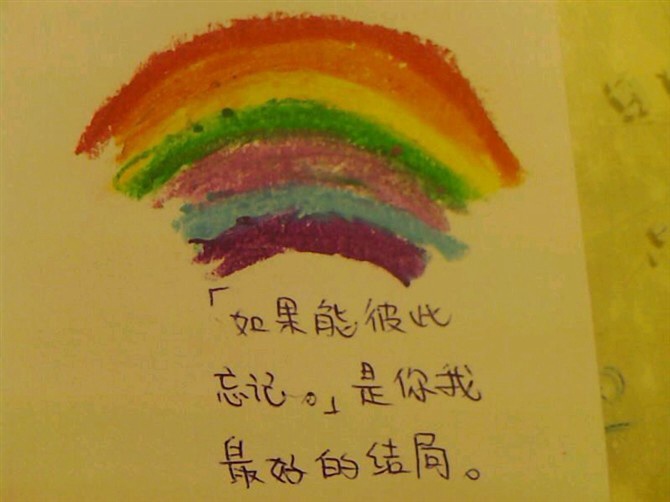 「如果能彼此
忘记。」是你我
最好的结局。